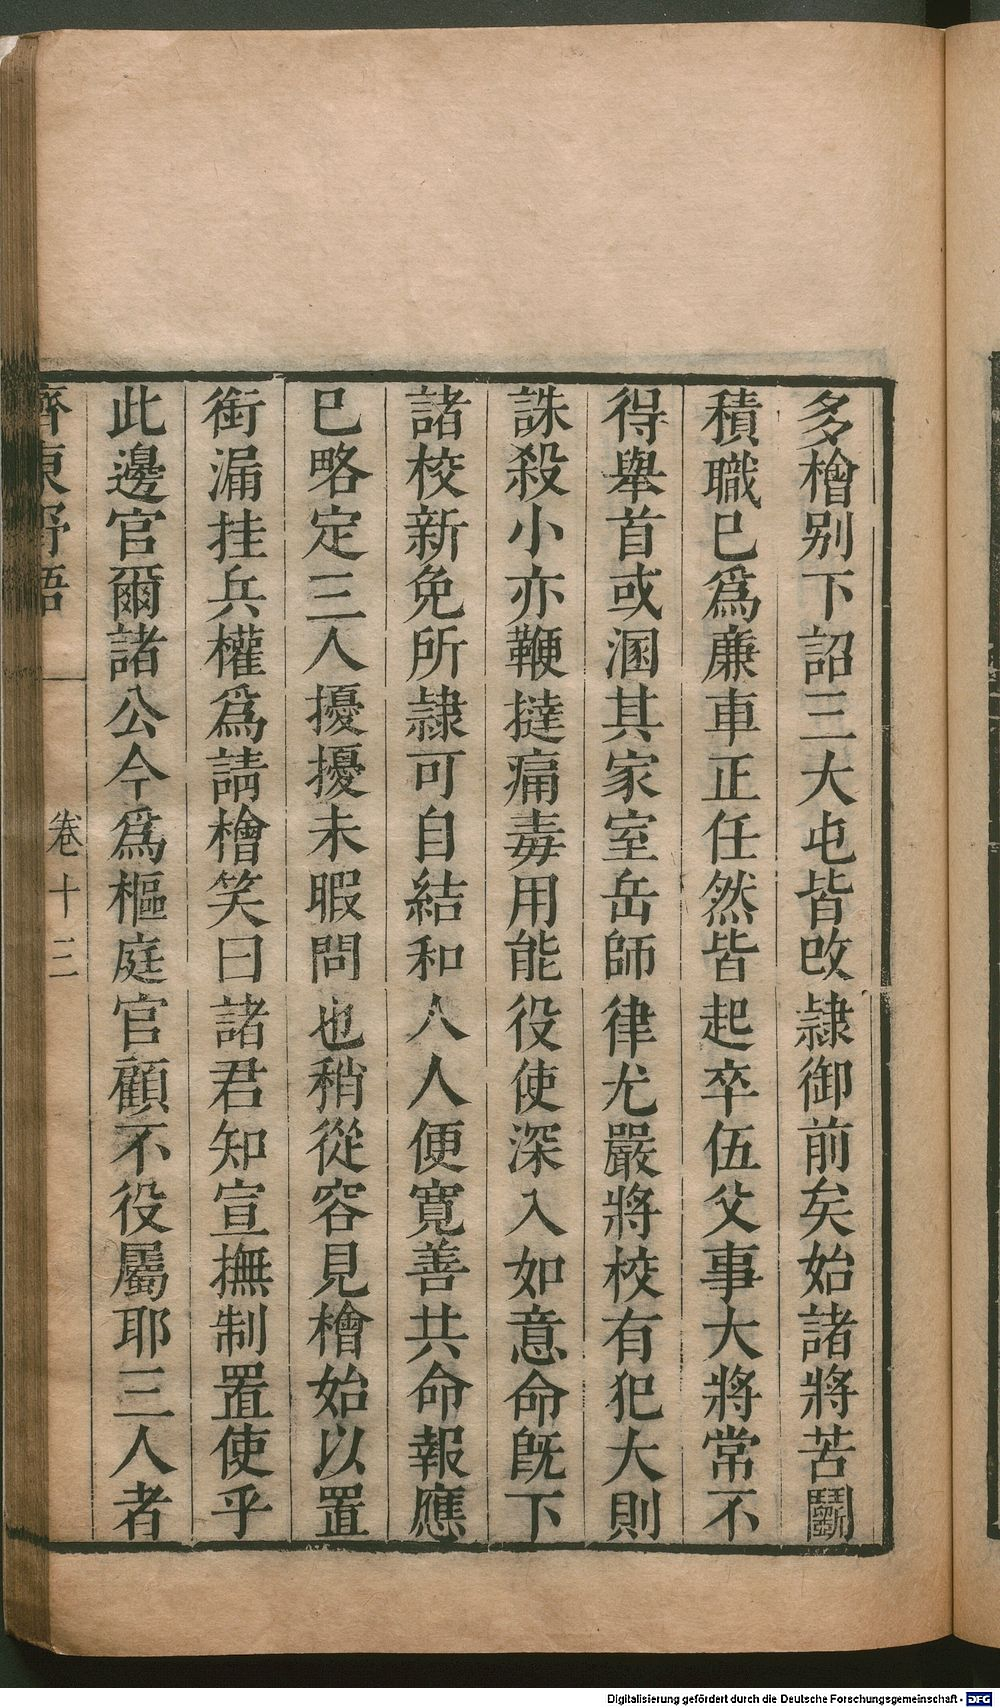 多檜别下詔三大屯皆改隷御前矣始諸將苦鬭
積職已爲廉車正任然皆起卒伍父事大將常不
得舉首或溷其家室岳師律尤嚴將校有犯大則
誅殺小亦鞭撻痛毒用能役使深入如意命既下
諸校新免所隷可自結和人人便寬善共命報應
已略定三人擾擾未暇問也稍從容見檜始以置
銜漏挂兵權爲請檜笑曰諸君知宣撫制置使乎
此邊官爾諸公今爲樞庭官顧不役屬耶三人者
齊東野語 卷十三
Digitalisierung gefördert durch die Deutsche Forschungsgemeinschaft - DFG